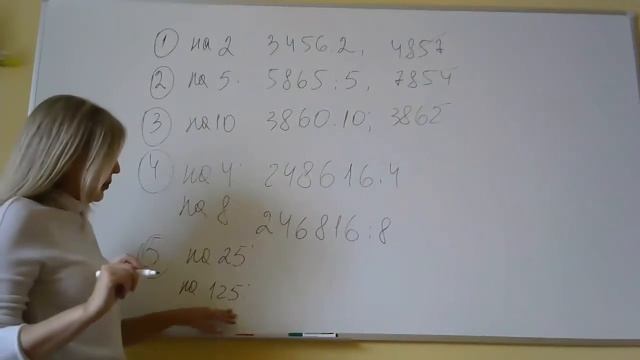 ① на 2 3456:2, 4857
② на 5. 5865:5, 7854
③ на 10 3860:10; 3862
④ на 4. 248616:4
на 8 246816:8
⑤ на 25
на 125